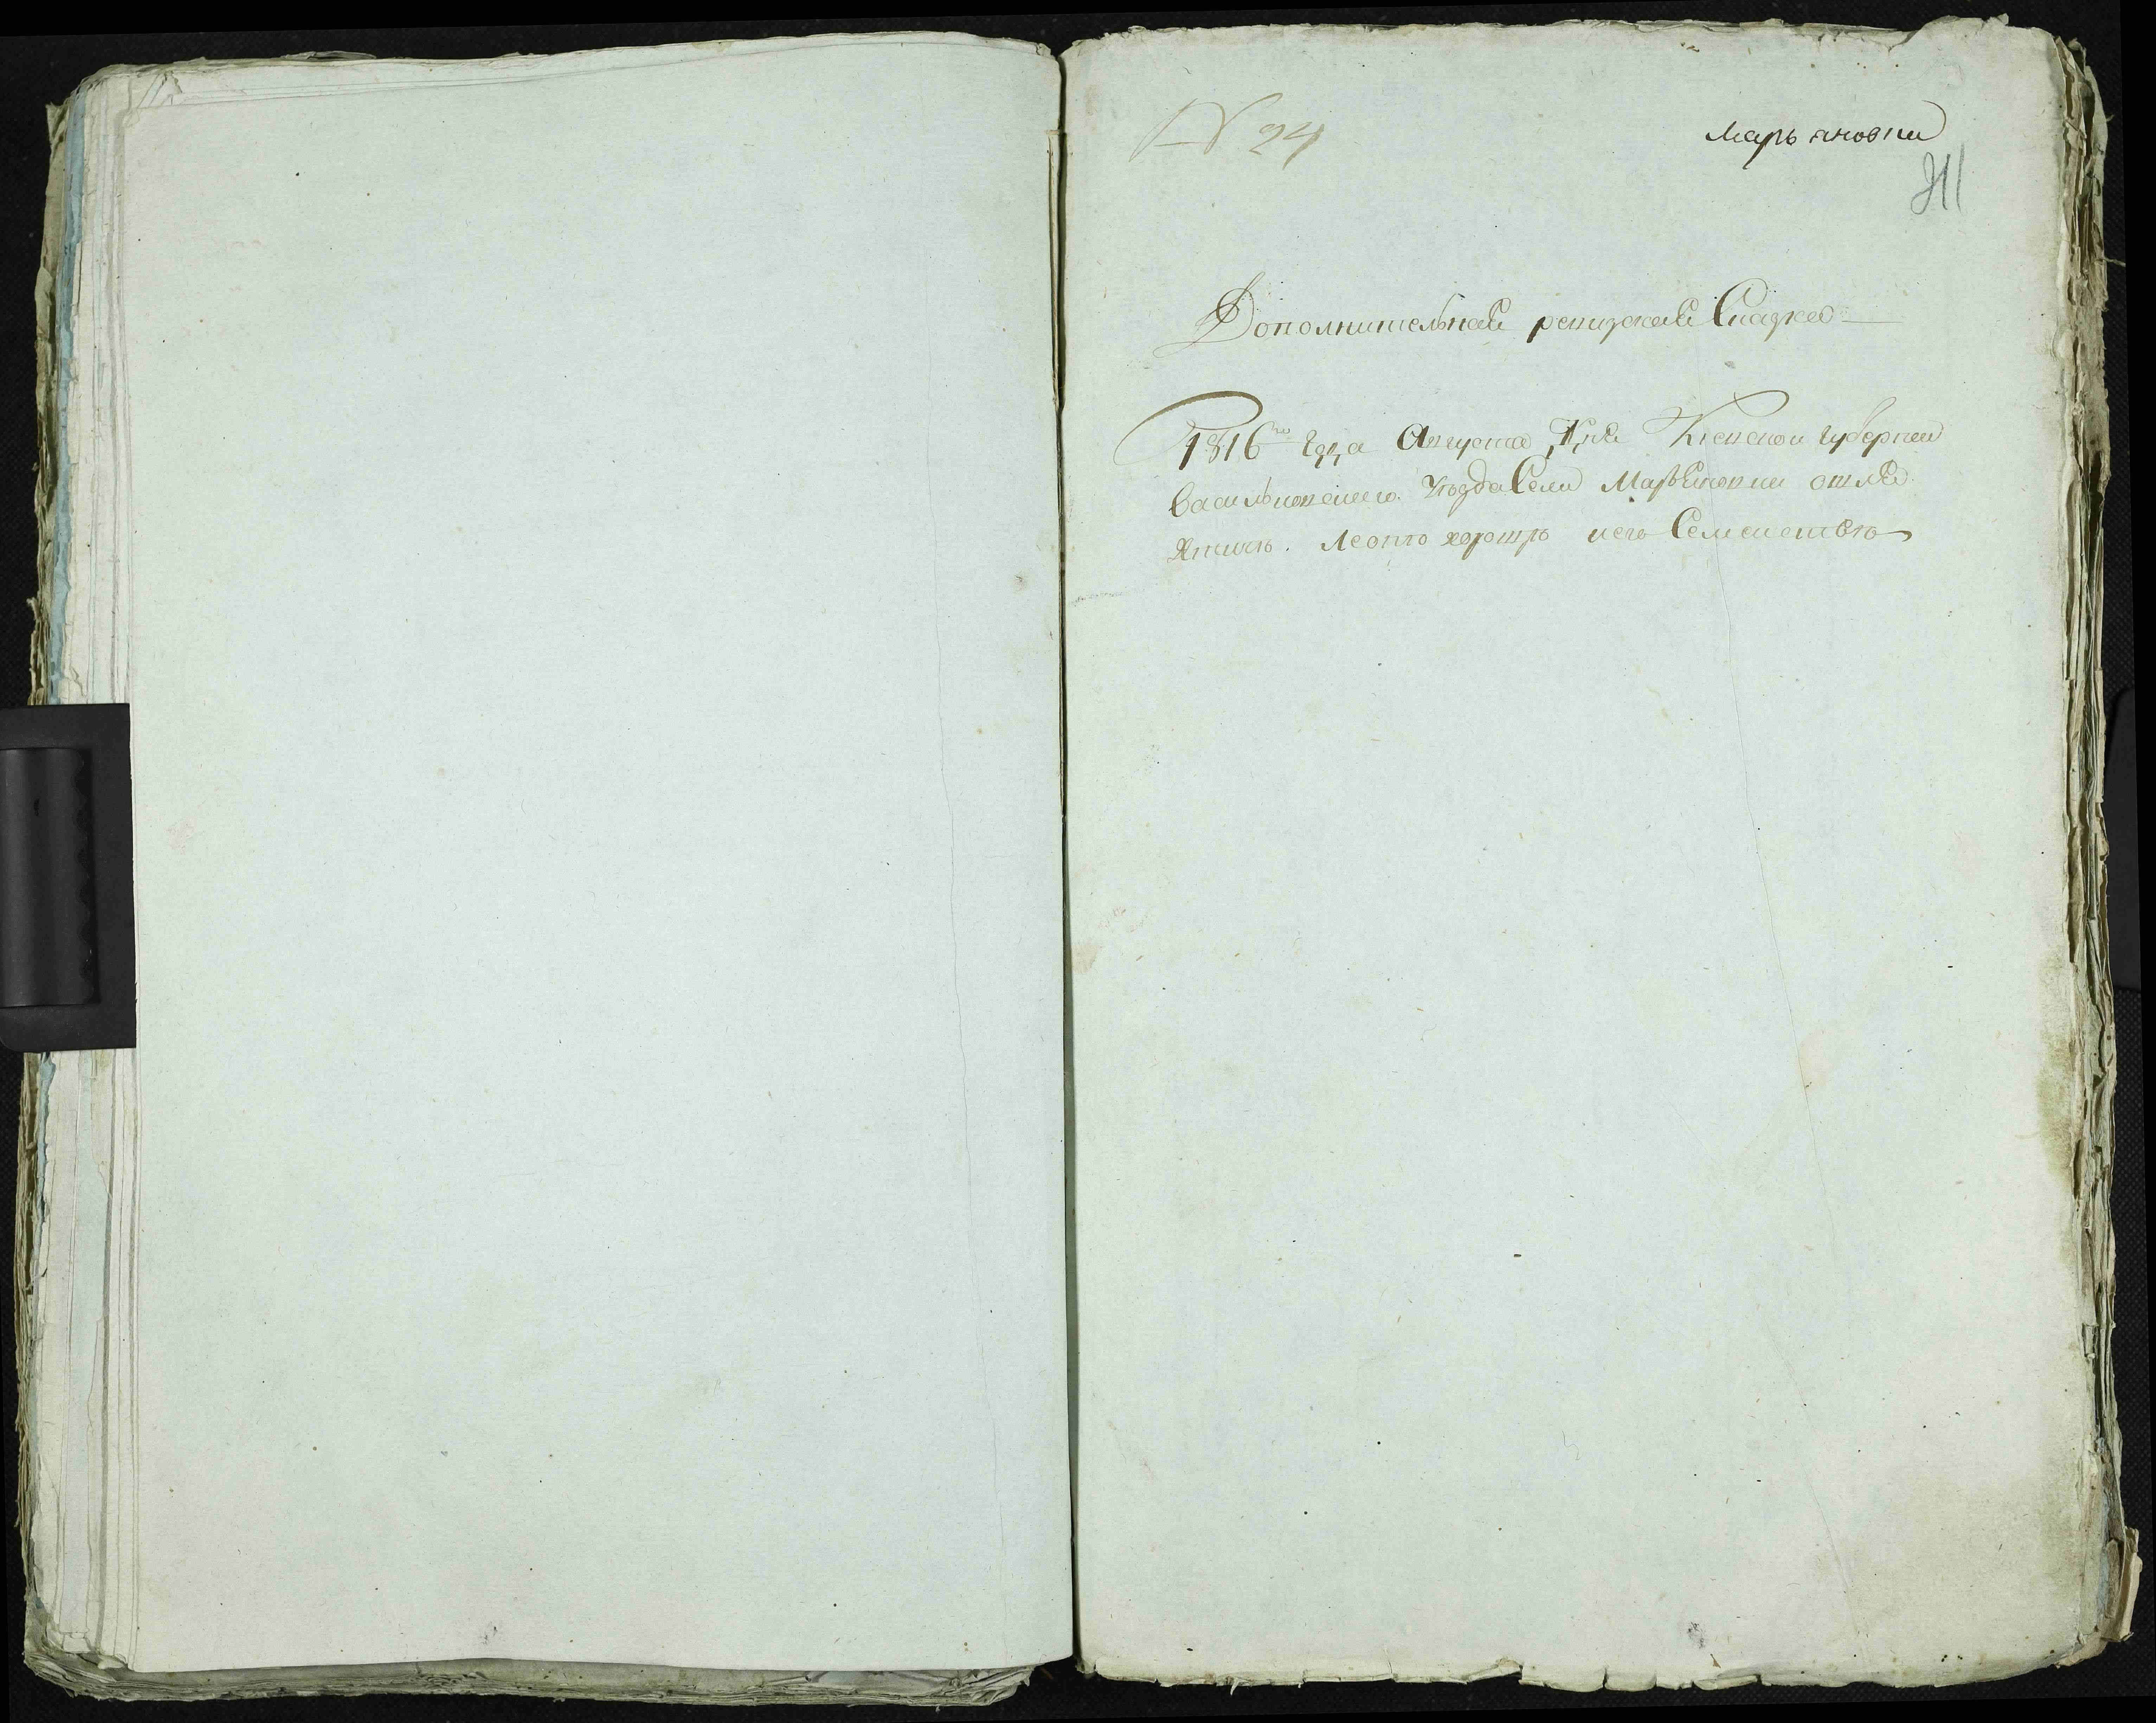 N 24
Марьяновки
311
Дополнительная ревизская Сказка
1816го года Августа дня Киевской губернии
Васильковского Уезда Села Марьяновки
его Семейство